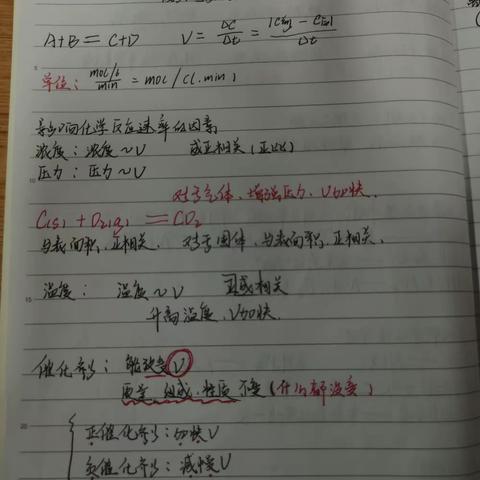 A+B = C+D  V = ΔC/Δt = |C(始) - C(末)|/Δt
单位: mol/L/min = mol/(L·min)
影响化学反应速率的因素
浓度: 浓度~V 成正相关(正比)
压力: 压力~V
对于气体, 增强压力, V加快.
C(s) + O2(g) = CO2
与表面积, 正相关. 对于固体, 与表面积, 正相关.
温度: 温度~V 正相关
升高温度, V加快.
催化剂: 能改变V
质量, 组成, 性质 不变 (什么都没变)
正催化剂: 加快V
负催化剂: 减慢V